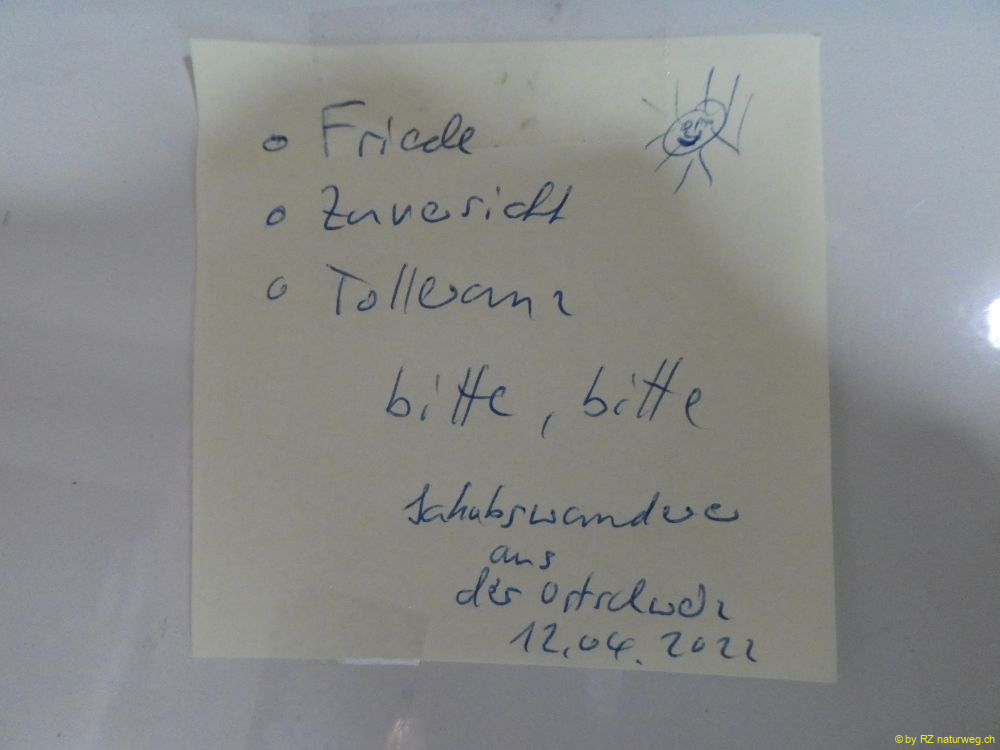 o Friede
o Zuversicht
o Tolleranz
bitte, bitte
Jakobswanderer
aus
der Ostschweiz
12.04.2022
© by RZ naturweg.ch